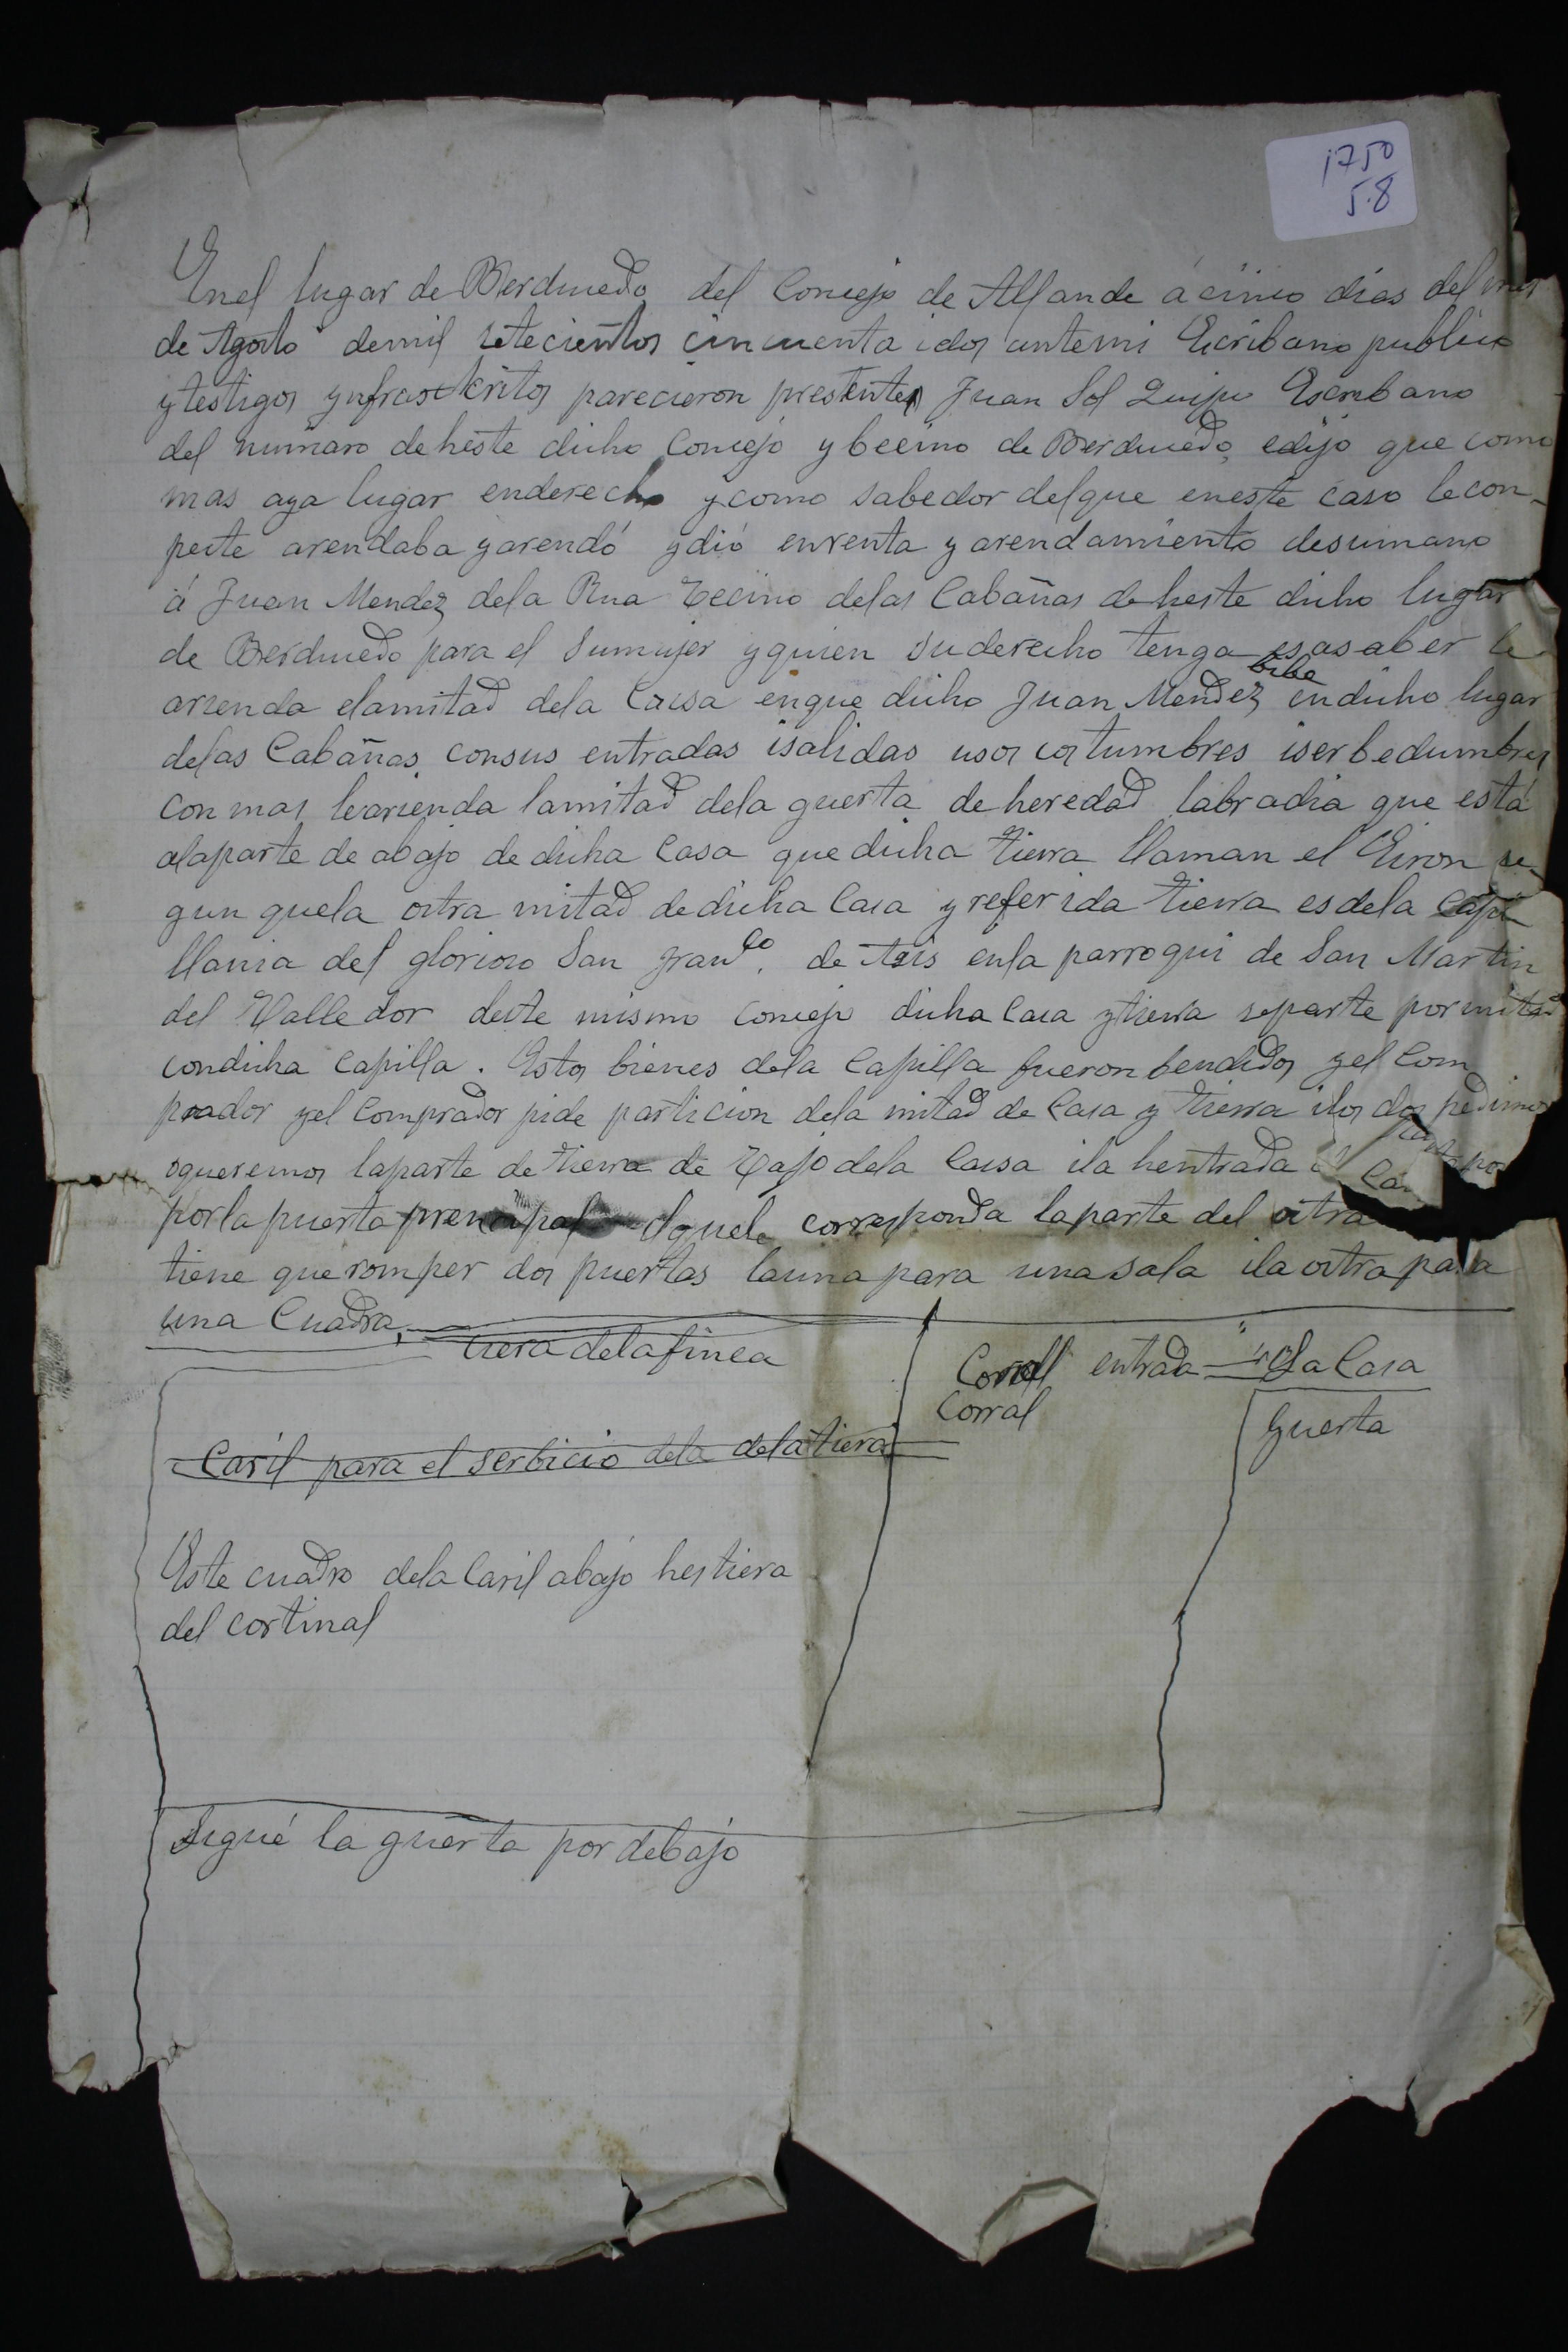 1750
5.8
Enel lugar de Berduedo del Concejo de Allande á cinco dias del mes
de Agosto demil setecientos cincuenta idos antemi Escribano publico
ytestigos ynfrasckritos parecieron presentes Juan Sol Quipo Escribano
del numaro deheste dicho Concejo ybecino de Berduedo, edijo que como
mas aya lugar enderecho ycomo sabedor delque eneste caso lecon-
pecte arendaba yarendó ydió enrenta y arendamiento desumano
á Juan Mendez dela Rua Vecino delas Cabañas deheste dicho lugar
de Berduedo para el sumujer yquien suderecho tenga esasaber le
bibe
arrenda elamitad dela Caisa enque dicho Juan Mendez endicho lugar
delas Cabañas, consus entradas isalidas usos costumbres iserbedumbres
con mas learienda lamitad dela guerta deheredad labradia que está
alaparte de abajo de dicha Casa quedicha tierra llaman el Eiron se-
gun quela otra mitad dedicha Casa y referida tierra esdela Cape
llania del glorioso San Franco. de Asis enla parroqui de San Martin
del Valledor deste mismo concejo dicha Casa ytierra separte pormitad
condicha Capilla. Estos bienes dela Capilla fueron bendidos yel Com
prador yel Comprador pide particion dela mitad de Casa y tierra ilos dos pedimos
oqueremos laparte de tierra de Vajo dela Caisa ila hentrada
porla puerta prencipal elquele corresponda laparte del otra
tiene queromper dos puertas launa para unasala ila otra para
una Cuadra,
tiera delafinca
Corral entrada La Casa
Corral
guerta
Caril para el serbicio dela delatiera
Este cuadro dela Caril abajo hestiera
del cortinal
Sigué la guerta por debajo